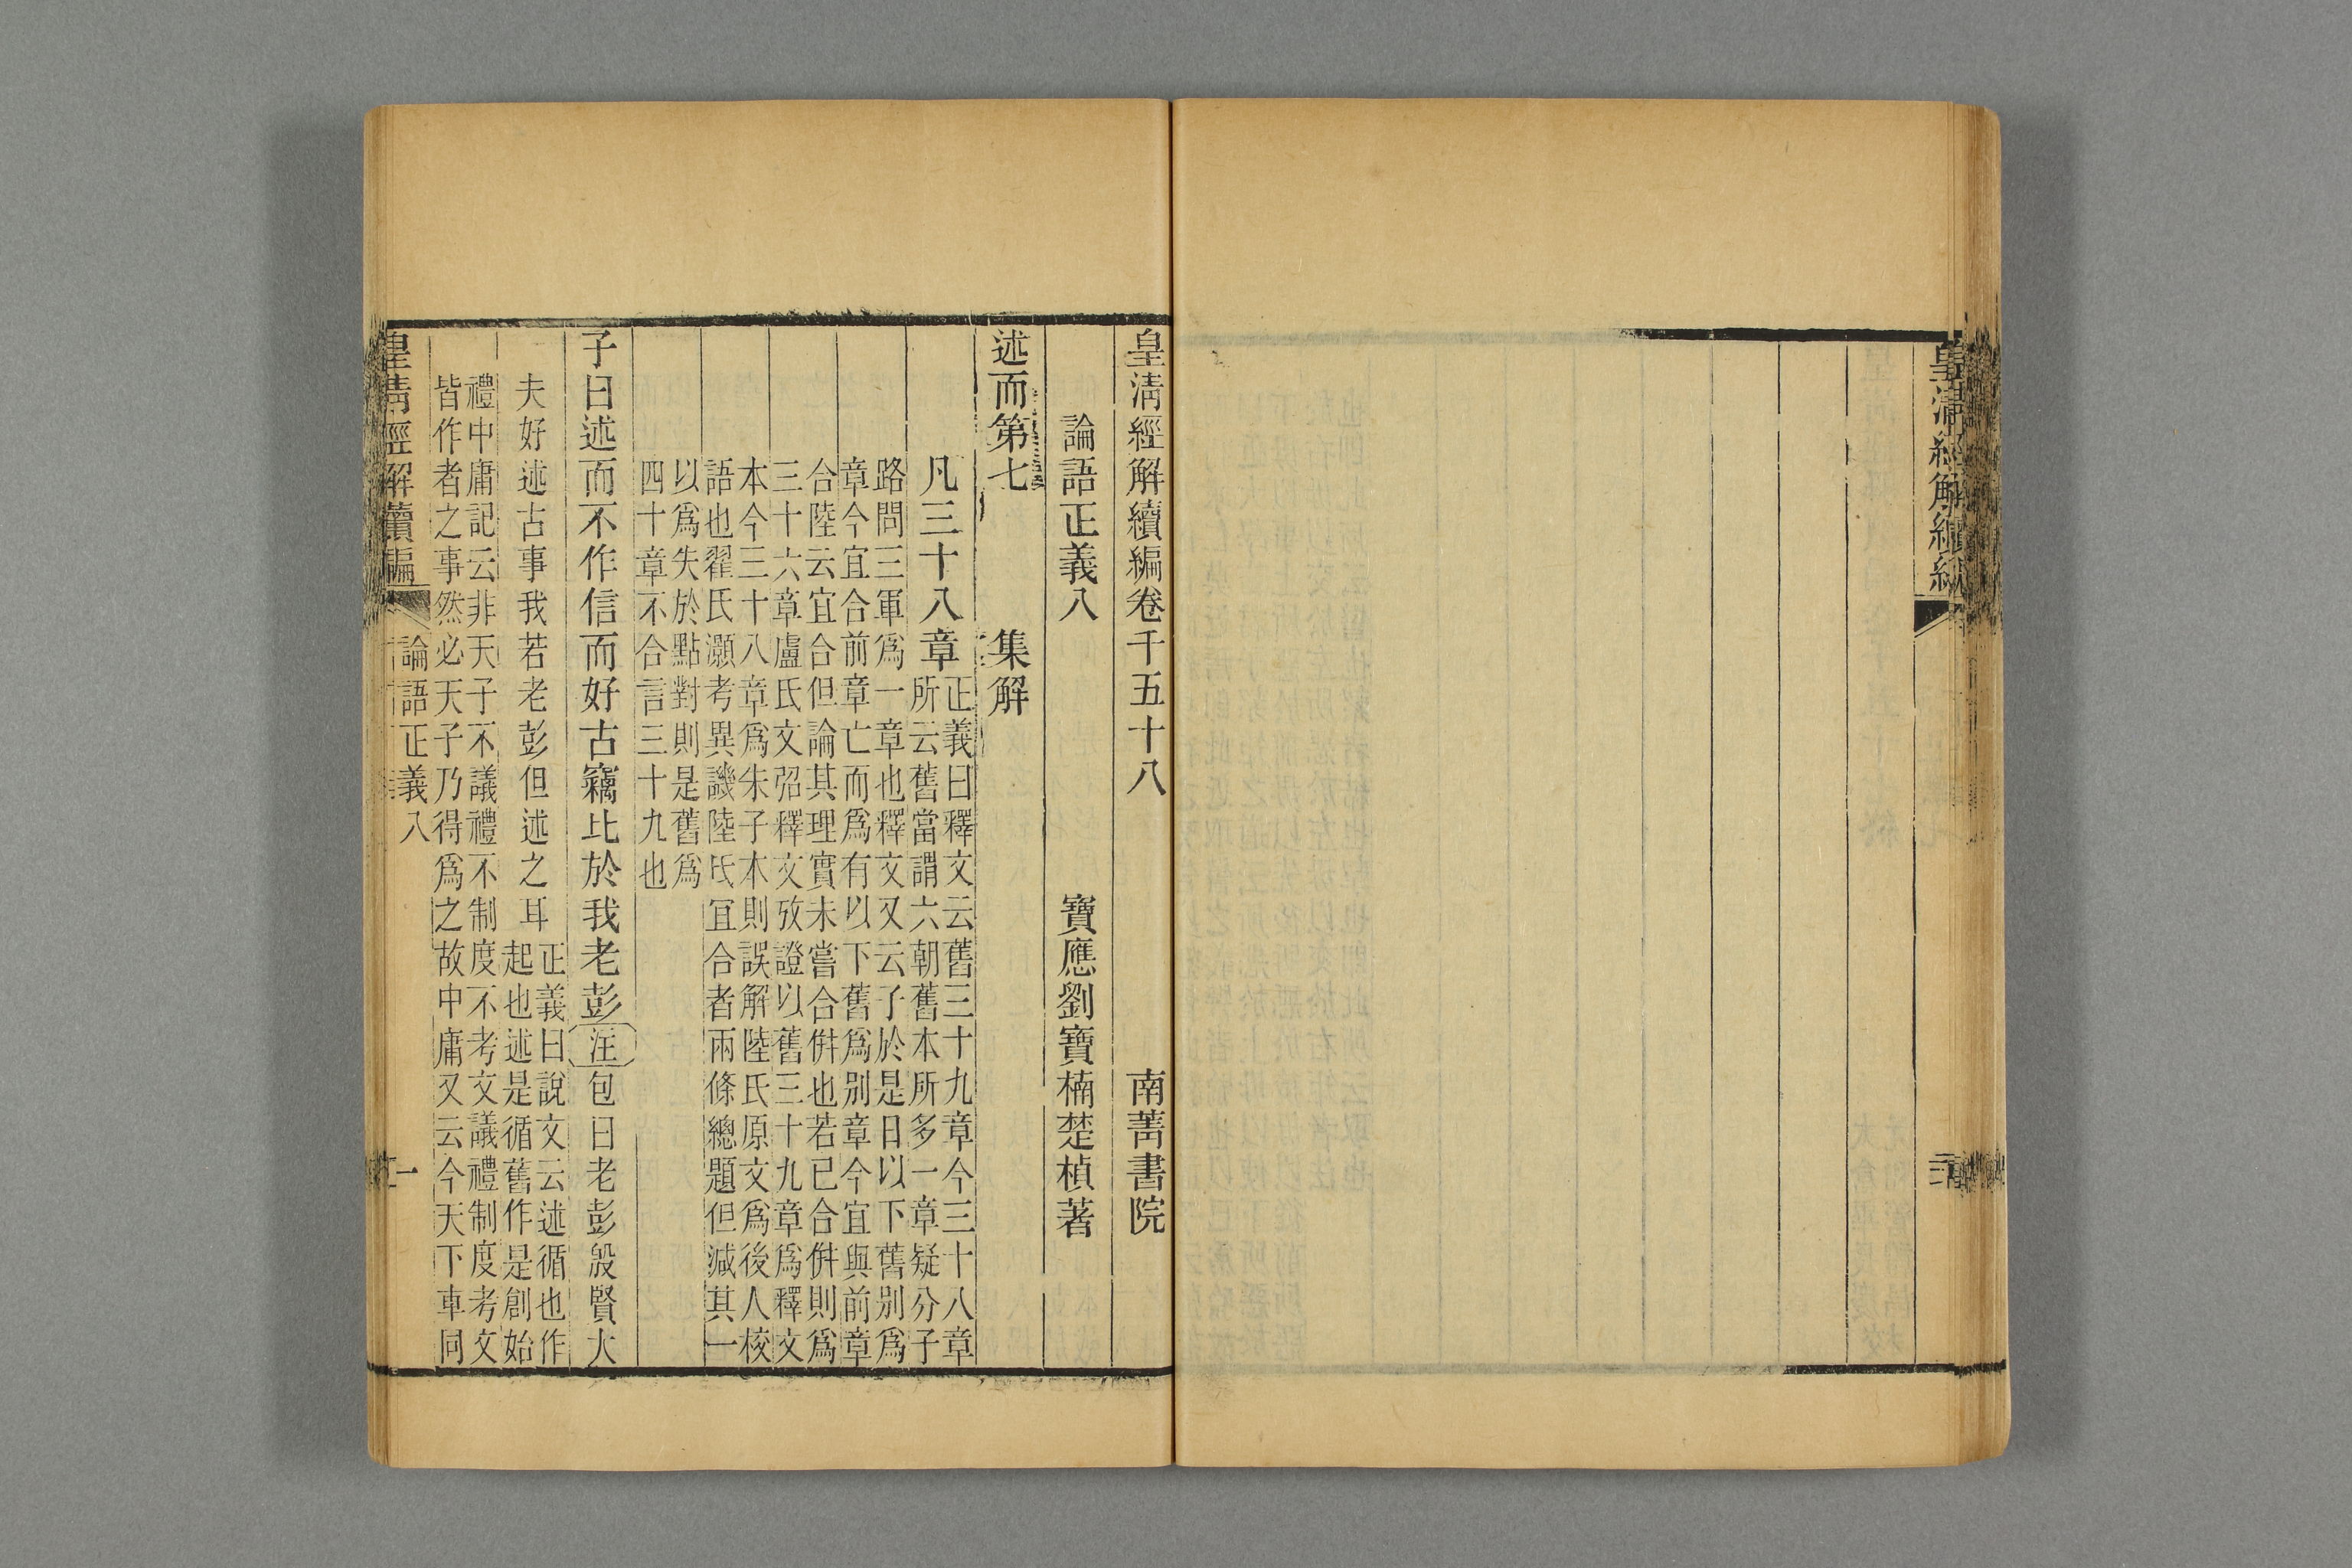 皇清經解續編
皇清經解續編卷千五十八 南菁書院
論語正義八 寶應劉寶楠楚楨著
述而第七 集解
凡三十八章
正義曰釋文云舊三十九章今三十八章
所云舊當謂六朝舊本所多一章疑分子
路問三軍爲一章也釋文又云子於是日以下舊別爲
章今宜合前章亡而爲有以下舊爲別章今宜與前章
合陸云宜合但論其理實未嘗合倂也若已合倂則爲
三十六章盧氏文弨釋文攷證以舊三十九章爲釋文
本今三十八章爲朱子本則誤解陸氏原文爲後人校
語也翟氏灝考異譏陸氏宜合者兩條總題但減其一
以爲失於點對則是舊爲
四十章不合言三十九也
子曰述而不作信而好古竊比於我老彭注包曰老彭殷賢大
夫好述古事我若老彭但述之耳
正義曰說文云述循也作
起也述是循舊作是創始
禮中庸記云非天子不議禮不制度不考文議禮制度考文
皆作者之事然必天子乃得爲之故中庸又云今天下車同
皇清經解續編 論語正義八 一